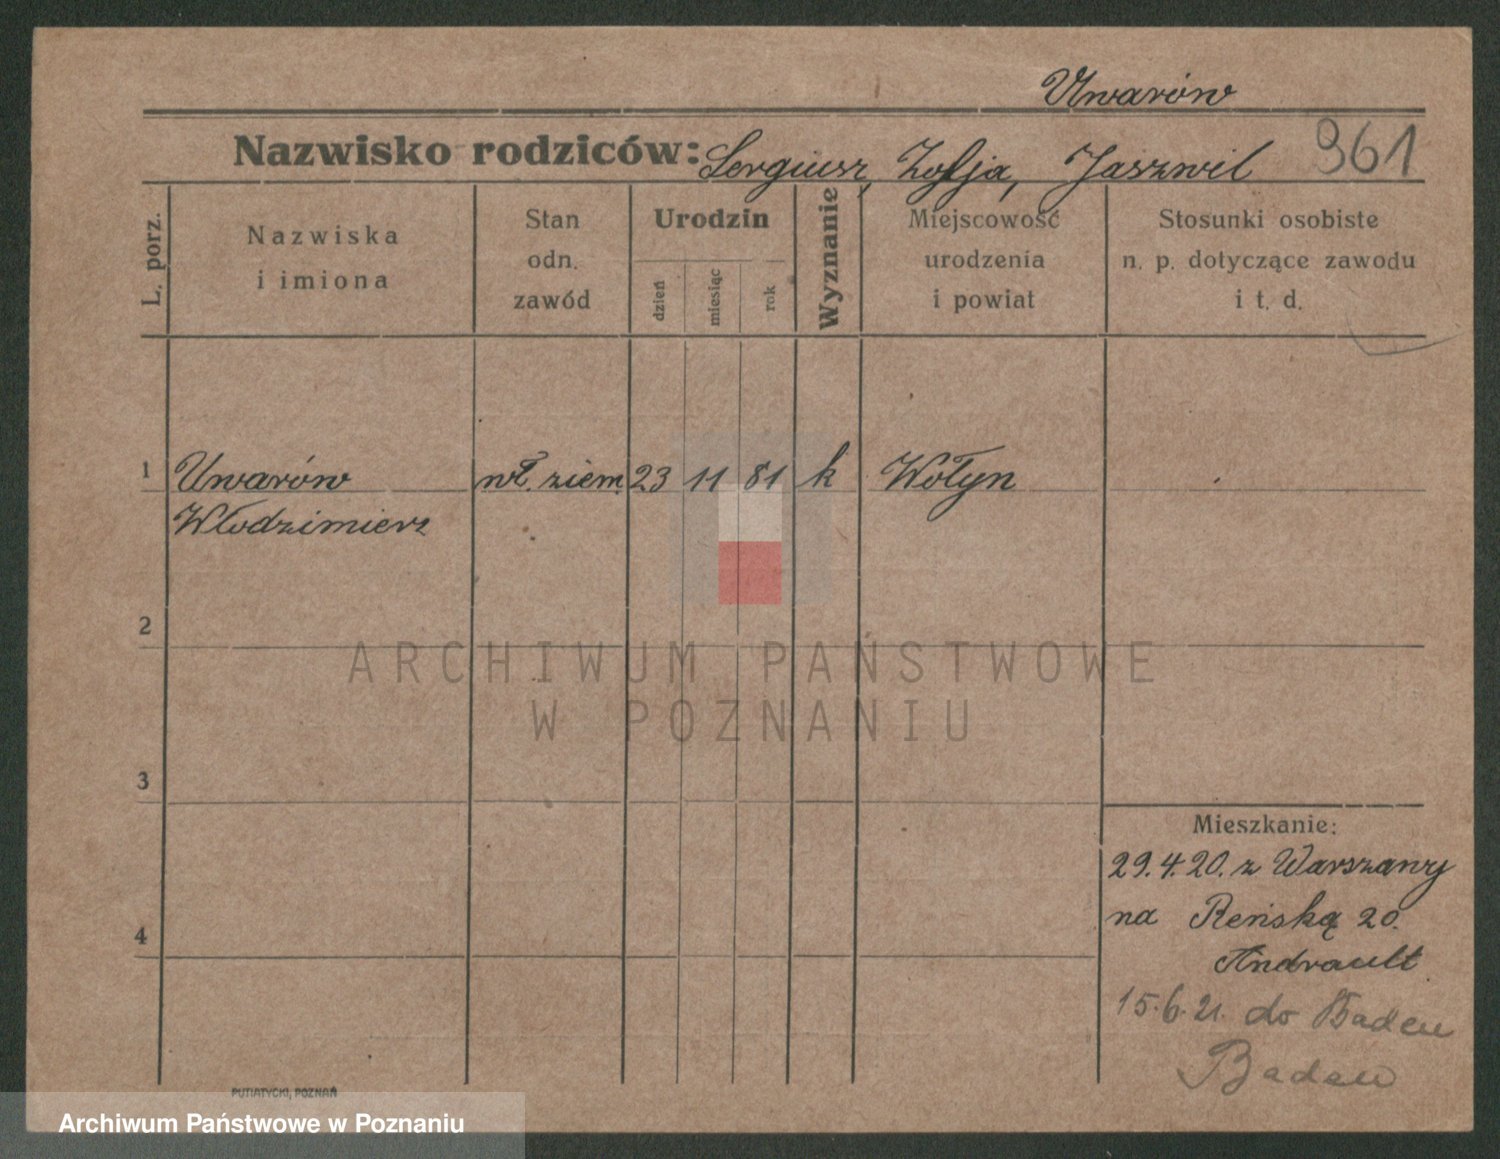 Uwarów
Nazwisko rodziców: Sergiusz, Zofja, Jaszwil 361
L. porz.
Nazwiska
i imiona
Stan
odn.
zawód
Urodzin
dzień
miesiąc
rok
Wyznanie
Miejscowość
urodzenia
i powiat
Stosunki osobiste
n. p. dotyczące zawodu
i t. d.
1 Uwarów wł. ziem. 23 11 81 k Wołyn
Włodzimierz
2
ARCHIWUM PAŃSTWOWE
W POZNANIU
3
Mieszkanie:
29.4.20. z Warszawy
na Reńską 20.
4
Andrault
15.6.21. do Baden
Baden
PUTIATYCKI, POZNAŃ
Archiwum Państwowe w Poznaniu